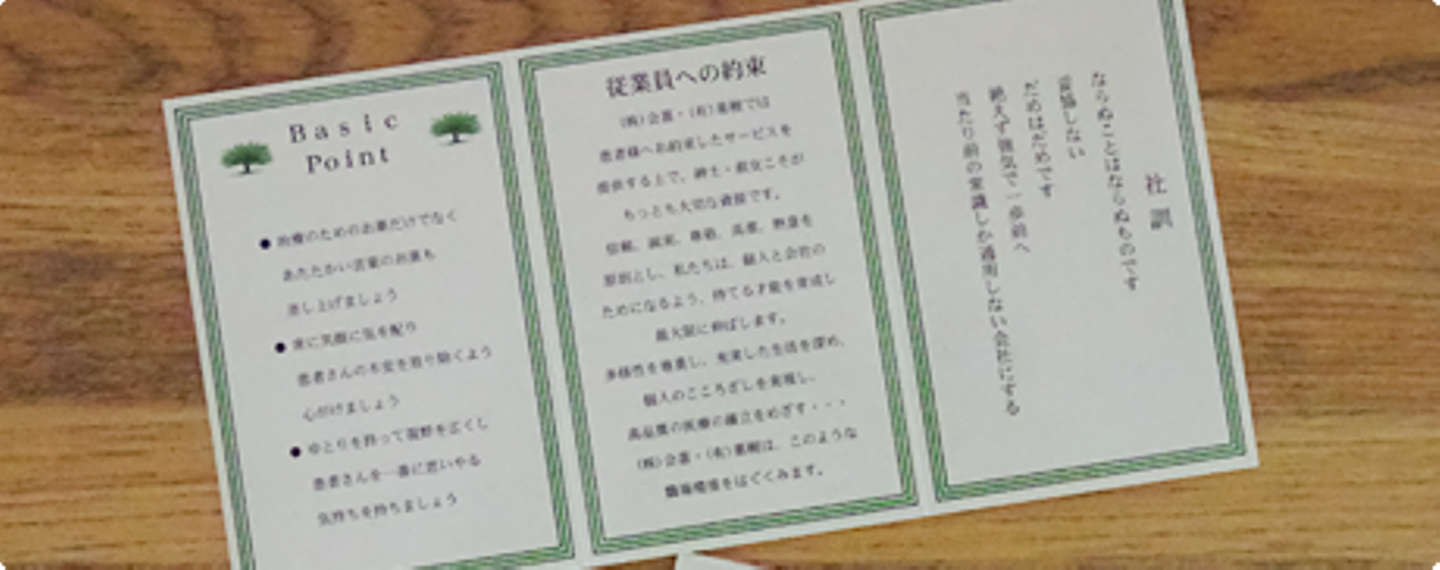 Basic
Point
● 治療のためのお薬だけでなく
あたたかい言葉のお薬も
差し上げましょう
● 常に笑顔に気を配り
患者さんの不安を取り除くよう
心がけましょう
● ゆとりを持って視野を広くし
患者さんを一番に思いやる
気持ちを持ちましょう
従業員への約束
患者様へお約束したサービスを
提供する上で、紳士・淑女こそが
もっとも大切な資源です。
信頼、誠実、尊敬、高潔、熱意を
原則とし、私たちは、個人と会社の
ためになるよう、持てる才能を育成し
最大限に伸ばします。
多様性を尊重し、充実した生活を深め、
個人のこころざしを実現し、
高品質の医療の確立をめざす・・・
は、このような
職場環境をはぐくみます。
社訓
ならぬことはならぬものです
妥協しない
だめはだめです
絶えず強気で一歩前へ
当たり前の常識しか通用しない会社にする